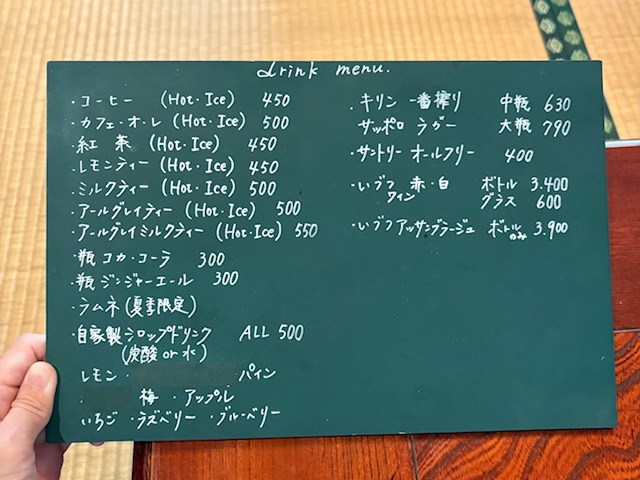 drink menu.
・コーヒー (Hot・Ice) 450
・カフェ・オ・レ (Hot・Ice) 500
・紅茶 (Hot・Ice) 450
・レモンティー (Hot・Ice) 450
・ミルクティー (Hot・Ice) 500
・アールグレイティー (Hot・Ice) 500
・アールグレイミルクティー (Hot・Ice) 550
・瓶コカ・コーラ 300
・瓶ジンジャーエール 300
・ラムネ (夏季限定)
・自家製シロップドリンク ALL 500
(炭酸 or 水)
レモン・ パイン
梅・アップル
いちご・ラズベリー・ブルーベリー
・キリン 一番搾り 中瓶 630
サッポロ ラガー 大瓶 790
・サントリー オールフリー 400
・いづつ 赤・白 ボトル 3.400
ワイン グラス 600
・いづつアッサンブラージュ ボトルのみ 3.900